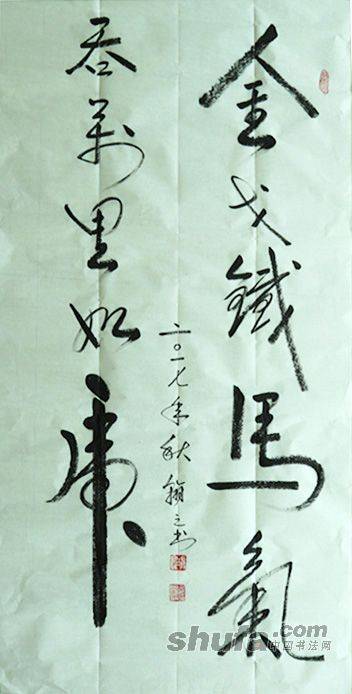 金戈鐵馬氣
吞萬里如虎
二〇一七年秋翰之书
shufa.com
中国书法网